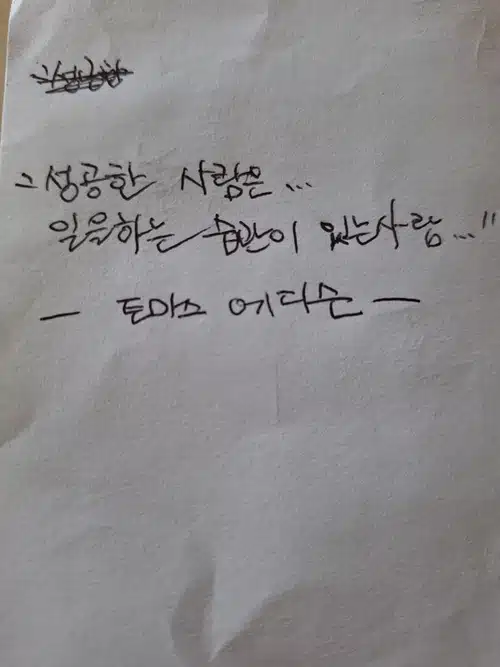 "성공한 사람은...
일을하는 습관이 있는사람..."
- 토마스 에디슨 -